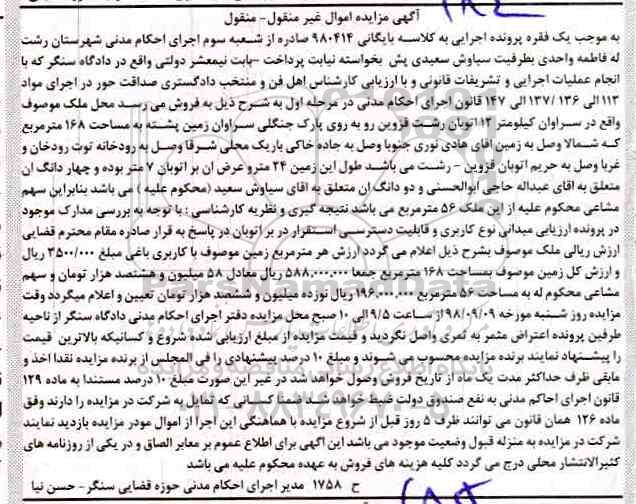 آگهی مزایده اموال غیر منقول- منقول
به موجب یک فقره پرونده اجرایی به کلاسه بایگانی ۹۸۰۴۱۴ صادره از شعبه سوم اجرای احکام مدنی شهرستان رشت
له فاطمه واحدی بطرفیت سیاوش سعیدی پش بخواسته نیابت پرداخت -بابت نیمعشر دولتی واقع در دادگاه سنگر که با
انجام عملیات اجرایی و تشریفات قانونی و با ارزیابی کارشناس اهل فن و منتخب دادگستری صداقت حور در اجرای مواد
۱۱۳ الی ۱۳۶ /۱۳۷ الی ۱۴۷ قانون اجرای احکام مدنی در مرحله اول به شرح ذیل به فروش می رسد محل ملک موصوف
واقع در سراوان کیلومتر ۱۲ اتوبان رشت قزوین رو به روی پارک جنگلی سراوان زمین پشته به مساحت ۱۶۸ مترمربع
که شمالا وصل به زمین اقای هادی نوری جنوبا وصل به جاده خاکی باریک محلی شرقا وصل به رودخانه توت رودخان و
غربا وصل به حریم اتوبان قزوین - رشت می باشد طول این زمین ۲۴ مترو عرض ان بر اتوبان ۷ متر بوده و چهار دانگ ان
متعلق به اقای عبداله حاجی ابوالحسنی و دو دانگ ان متعلق به اقای سیاوش سعید (محکوم علیه ) می باشد بنابراین سهم
مشاعی محکوم علیه از این ملک ۵۶ مترمربع می باشد نتیجه گیری و نظریه کارشناسی : با توجه به بررسی مدارک موجود
در پرونده ارزیابی میدانی نوع کاربری و قابلیت دسترسی استقرار در بر اتوبان در پاسخ به قرار صادره مقام محترم قضایی
ارزش ریالی ملک موصوف بشرح ذیل اعلام می گردد ارزش هر مترمربع زمین موصوف با کاربری باغی مبلغ ۳۵۰۰/۰۰۰ ریال
و ارزش کل زمین موصوف بمساحت ۱۶۸ مترمربع جمعا ۵۸۸.۰۰۰.۰۰۰ ریال معادل ۵۸ میلیون و هشتصد هزار تومان و سهم
مشاعی محکوم له به مساحت ۵۶ مترمربع ۱۹۶.۰۰۰.۰۰۰ ریال نوزده میلیون و ششصد هزار تومان تعیین و اعلام میگردد وقت
مزایده روز شنبه مورخه ۹۸/۰۹/۰۹ از ساعت ۹/۵ الی ۱۰ صبح محل مزایده دفتر اجرای احکام مدنی دادگاه سنگر از ناحیه
طرفین پرونده اعتراض مثمر به ثمری واصل نگردید و قیمت مزایده از مبلغ ارزیابی شده شروع و کسانیکه بالاترین قیمت
را پیشنهاد نمایند برنده مزایده محسوب می شوند و مبلغ ۱۰ درصد پیشنهادی را فی المجلس از برنده مزایده نقدا اخذ و
مابقی ظرف حداکثر مدت یک ماه از تاریخ فروش وصول خواهد شد در غیر این صورت مبلغ ۱۰ درصد مستندا به ماده ۱۲۹
قانون اجرای احاکم مدنی به نفع صندوق دولت ضبط خواهد شد ضمنا کسانی که تمایل به شرکت در مزایده را دارند وفق
ماده ۱۲۶ همان قانون می توانند ظرف ۵ روز قبل از شروع مزایده با هماهنگی این اجرا از اموال مودر مزایده بازدید نمایند
شرکت در مزایده به منزله قبول وضعیت موجود می باشد این اگهی برای اطلاع عموم بر معابر الصاق و در یکی از روزنامه های
کثیرالانتشار محلی درج می گردد کلیه هزینه های فروش به عهده محکوم علیه می باشد
ح ۱۷۵۸ مدیر اجرای احکام مدنی حوزه قضایی سنگر- حسن نیا